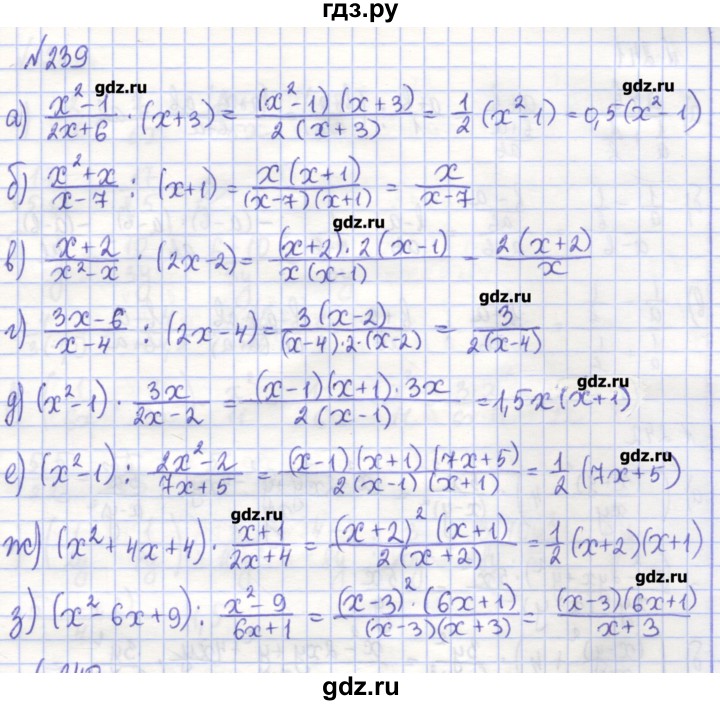 гдз.ру
№239
gdz.ru gdz.ru
а) (x²-1)/(2x+6) · (x+3) = ((x²-1)(x+3))/(2(x+3)) = 1/2 (x²-1) = 0,5(x²-1)
б) (x²+x)/(x-7) : (x+1) = (x(x+1))/((x-7)(x+1)) = x/(x-7)
gdz.ru
в) (x+2)/(x²-x) · (2x-2) = ((x+2)·2(x-1))/(x(x-1)) = (2(x+2))/x
gdz.ru
г) (3x-6)/(x-4) : (2x-4) = (3(x-2))/((x-4)·2·(x-2)) = 3/(2(x-4))
gdz.ru
д) (x²-1) · 3x/(2x-2) = ((x-1)(x+1)·3x)/(2(x-1)) = 1,5x(x+1)
gdz.ru
е) (x²-1) : (2x²-2)/(7x+5) = ((x-1)(x+1)(7x+5))/(2(x-1)(x+1)) = 1/2 (7x+5)
gdz.ru
ж) (x²+4x+4) · (x+1)/(2x+4) = ((x+2)²(x+1))/(2(x+2)) = 1/2 (x+2)(x+1)
gdz.ru
з) (x²-6x+9) : (x²-9)/(6x+1) = ((x-3)²·(6x+1))/((x-3)(x+3)) = ((x-3)(6x+1))/(x+3)
gdz.ru